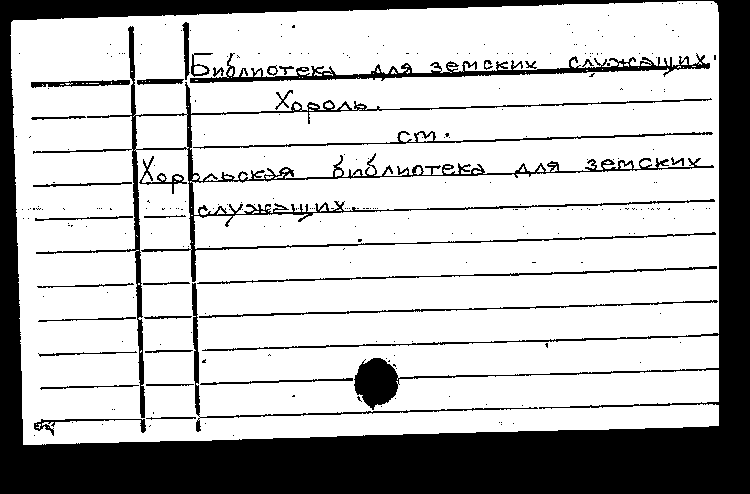 Библиотека для земских служащих.
Хороль.
ст.
Хорольская библиотека для земских
служащих.